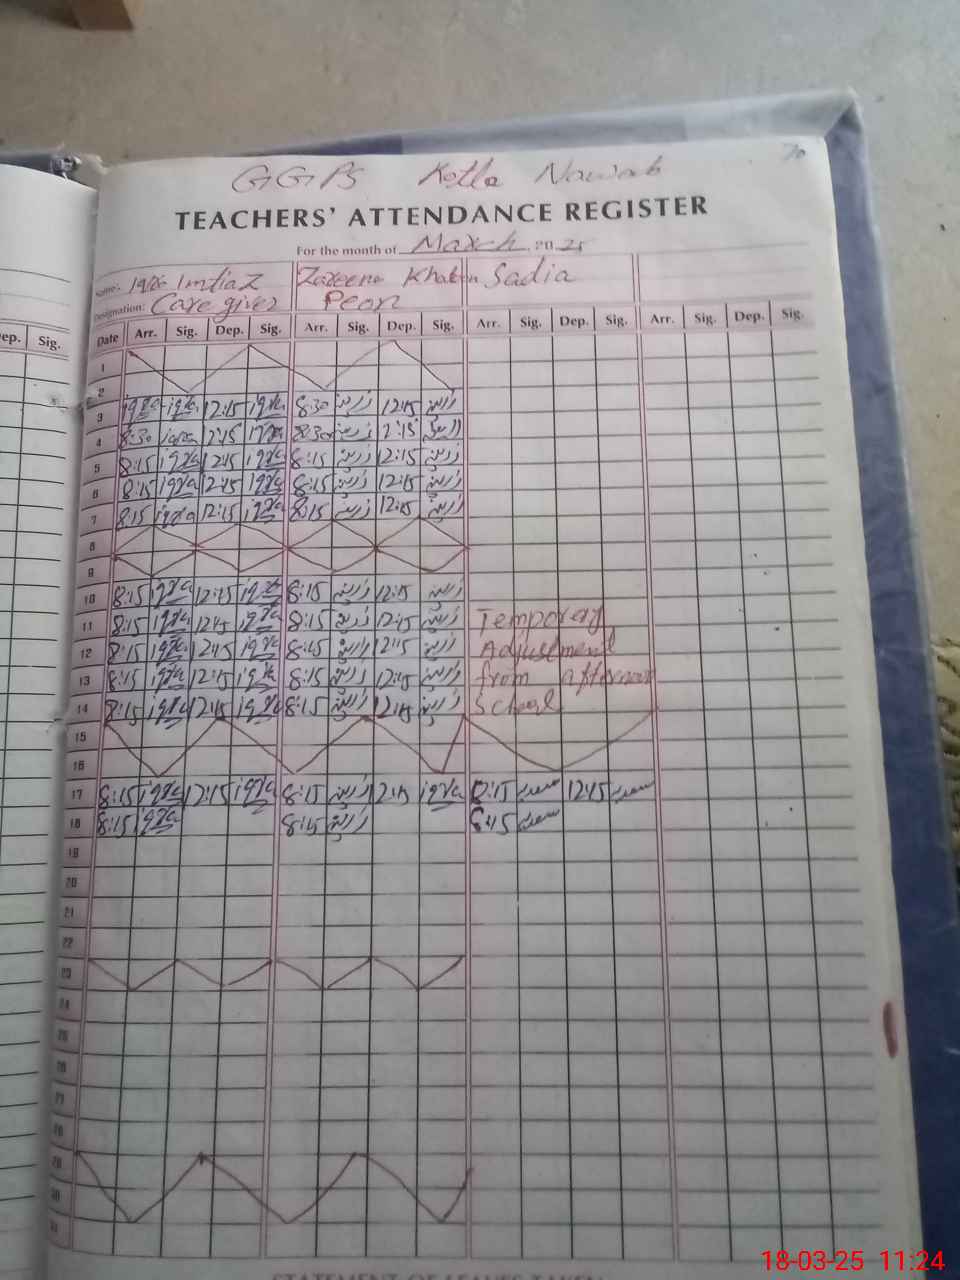 GGPS Kotla Nawab
TEACHERS' ATTENDANCE REGISTER
For the month of March 2025
Name: Imtiaz Zareena Khatoon Sadia
Designation: Care giver Peon
Date Arr. Sig. Dep. Sig. Arr. Sig. Dep. Sig. Arr. Sig. Dep. Sig. Arr. Sig. Dep. Sig.
ep. Sig.
1
2
3 12:15 8:30 زرینہ 12:15 زرینہ
4 8:30 12:15 8:30 زرینہ 12:15 زرینہ
5 8:15 12:15 8:15 زرینہ 12:15 زرینہ
6 8:15 12:15 8:15 زرینہ 12:15 زرینہ
7 8:15 12:15 8:15 زرینہ 12:15 زرینہ
8
9
10 8:15 12:15 8:15 زرینہ 12:15 زرینہ
11 8:15 12:15 8:15 زرینہ 12:15 زرینہ Temporay
12 8:15 12:15 8:15 زرینہ 12:15 زرینہ Adjustment
13 8:15 12:15 8:15 زرینہ 12:15 زرینہ from afternoon
14 8:15 12:15 8:15 زرینہ 12:15 زرینہ School
15
16
17 8:15 12:15 8:15 زرینہ 12:15 8:15 12:15
18 8:15 8:15 زرینہ 8:15
19
20
21
22
23
24
25
26
27
28
29
30
31
STATEMENT OF LEAVES TAKEN
18-03-25 11:24